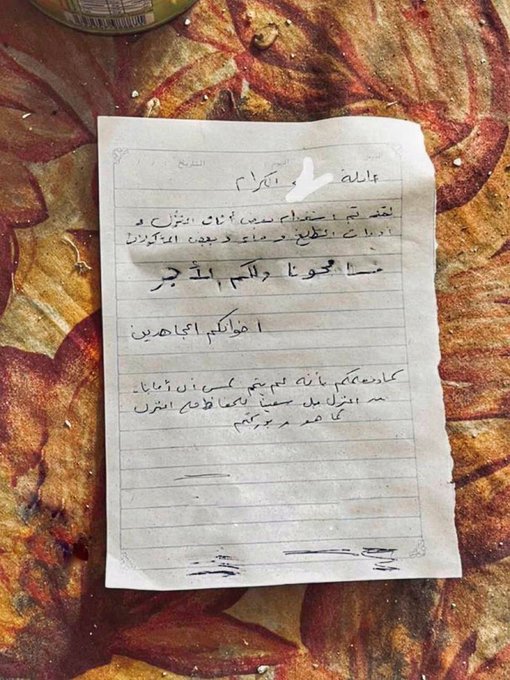 الدرس اليوم التاريخ
عائلة الكرام
لقد تم استخدام بعض أثاث المنزل و
أدوات الطبخ و ماء و بعض المأكولات
فسامحونا ولكم الأجر
اخوانكم المجاهدين
كما نعلمكم بأنه لم يتم لمس أي أمانات
المنزل بل سعينا للحفاظ على المنزل
كما هو